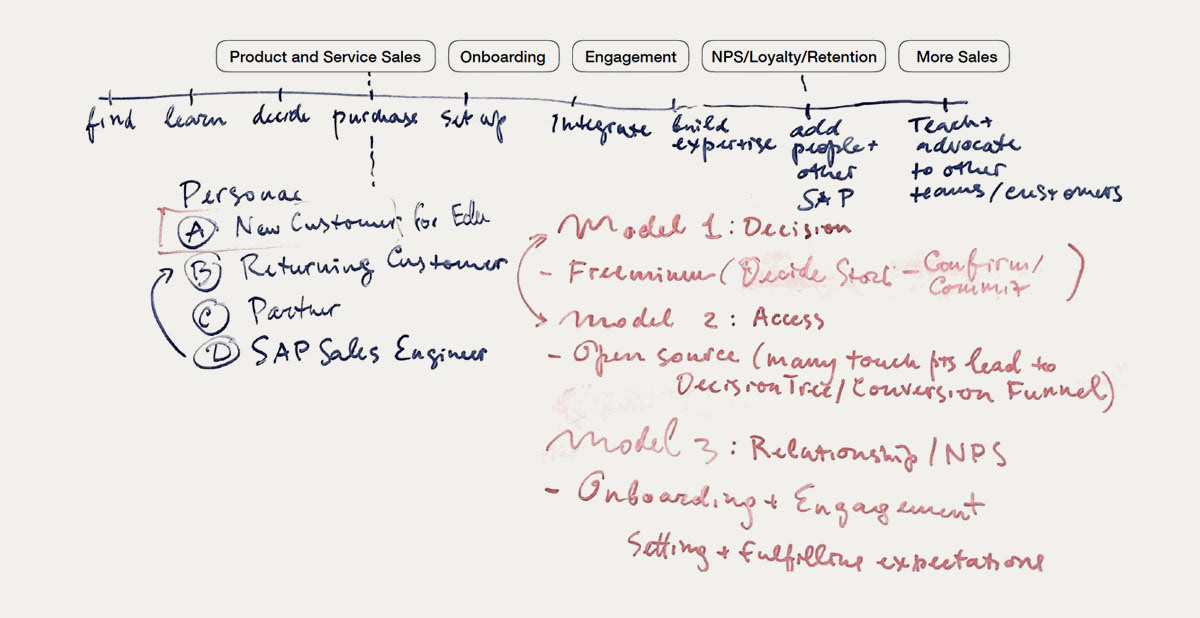 Product and Service Sales
Onboarding
Engagement
NPS/Loyalty/Retention
More Sales
find
learn
decide
purchase
set up
Integrate
build
expertise
add
people +
other
SAP
Teach +
advocate
to other
teams/customers
Personae
A New Customer for Edu
B Returning Customer
C Partner
D SAP Sales Engineer
Model 1: Decision
- Freemium (Decide Start - Confirm/
Commit)
Model 2: Access
- Open source (many touch pts lead to
Decision Tree/Conversion Funnel)
Model 3: Relationship/NPS
- Onboarding + Engagement
Setting + Fulfilling expectations